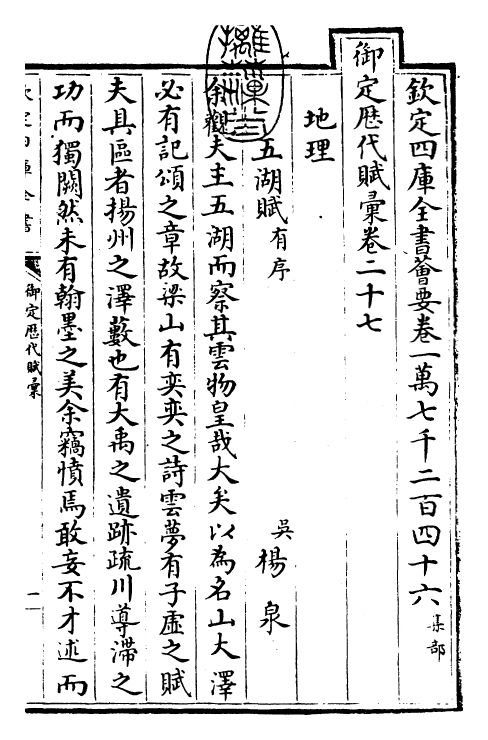 欽定四庫全書薈要卷一萬七千二百四十六 集部
御定歷代賦彙卷二十七
地理
五湖賦有序
吳 楊泉
余觀夫主五湖而察其雲物皇哉大矣以為名山大澤
必有記頌之章故梁山有奕奕之詩雲夢有子虛之賦
夫具區者揚州之澤藪也有大禹之遺跡疏川導滯之
功而獨闕然未有翰墨之美余竊憤焉敢妄不才述而
御定歷代賦彙
一